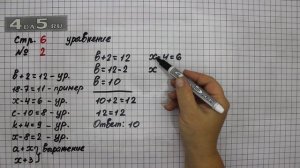 4а5.ru
Стр. 6 уравнение
№ 2
в+2=12 - ур.
18-7=11 - пример
х-4=6 - ур.
с-10=8 - ур.
к+4=9 - ур.
х-8=2 - ур.
а+х } выражение
х+3
в+2=12
в=12-2
в=10
10+2=12
12=12
Ответ: 10
х-4=6
х